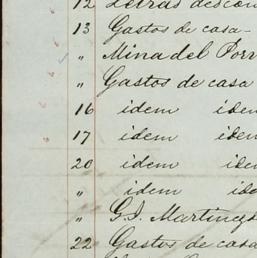 12 Letras descon
13 Gastos de casa -
" Mina del Porr
" Gastos de casa
16 idem idem
17 idem idem
20 idem idem
" idem ide
" G. I. Martinez
22 Gastos de casa